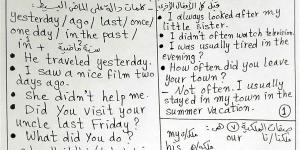 - كلمات دالة على الماضي البسيط:-
yesterday / ago / last / once /
one day / in the past /
in + سنة ماضية
• He traveled yesterday.
• I saw a nice film two
days ago.
• She didn't help me.
• Did you visit your
uncle last Friday?
• What did you do?
قبل كل الأفعال
• I always looked after my
little sister.
• I didn't often watch television.
• I was usually tired in the
evening?
• How often did you leave
your town?
- Not often. I usually
stayed in my town in the
summer vacation.
1
صفات الملكية (٧) هي:
my ملكي / our ملكنا
his